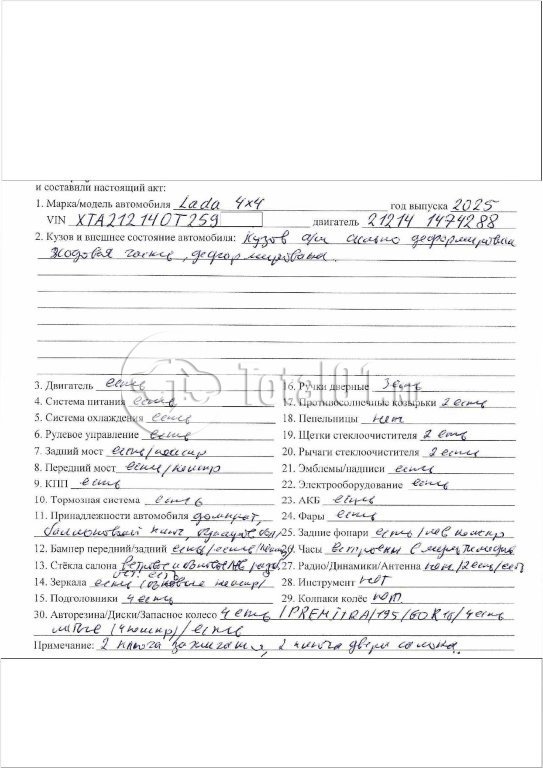 и составили настоящий акт:
1. Марка/модель автомобиля Lada 4x4 год выпуска 2025
VIN XTA212140T259 двигатель 21214 1474288
2. Кузов и внешнее состояние автомобиля: Кузов а/м сильно деформирован
Ходовая часть, деформирована.
3. Двигатель есть
4. Система питания есть
5. Система охлаждения есть
6. Рулевое управление есть
7. Задний мост есть/неиспр
8. Передний мост есть/неиспр
9. КПП есть
10. Тормозная система есть
11. Принадлежности автомобиля домкрат,
баллонный ключ,
12. Бампер передний/задний есть/есть/
13. Стёкла салона
14. Зеркала есть
15. Подголовники 4 есть
16. Ручки дверные 3 есть
17. Противосолнечные козырьки 2 есть
18. Пепельницы нет
19. Щетки стеклоочистителя 2 есть
20. Рычаги стеклоочистителя 2 есть
21. Эмблемы/надписи есть
22. Электрооборудование есть
23. АКБ есть
24. Фары есть
25. Задние фонари есть/лев неиспр
26. Часы встроены в
27. Радио/Динамики/Антенна нет/2есть/есть
28. Инструмент нет
29. Колпаки колёс нет
30. Авторезина/Диски/Запасное колесо 4 есть /PREMITRA/195/60R16/4есть
литые /4неиспр//есть
Примечание: 2 ключа зажигания, 2 ключа двери салона.
Total01.ru